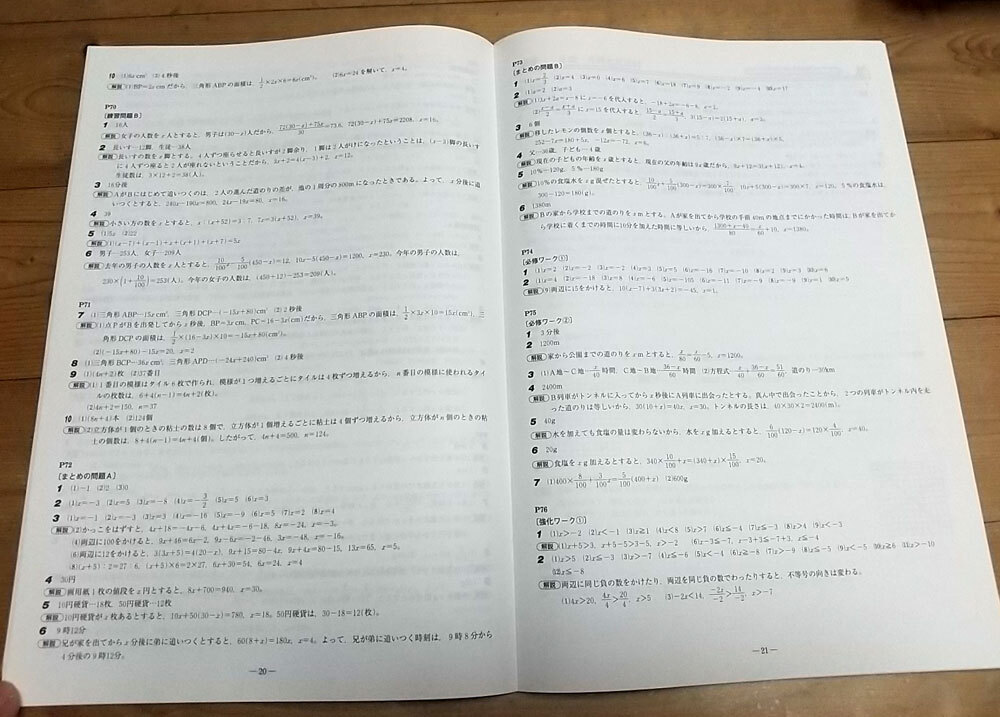 10 (1)6x cm² (2)4秒後
解説 (1)BP=2x cmだから、三角形ABPの面積は、1/2×2x×6=6x(cm²)。 (2)6x=24を解いて、x=4。
P70
[練習問題B]
1 16人
解説 女子の人数をx人とすると、男子は(30-x)人だから、72(30-x)+75x/30=73.6、72(30-x)+75x=2208、x=16。
2 長いす…12脚、生徒…38人
解説 長いすの数をx脚とする。4人ずつ座らせると長いすが2脚余り、1脚は2人がけになったということは、(x-3)脚の長いす
に4人ずつ座ると2人が座れないということだから、3x+2=4(x-3)+2、x=12。
生徒数は、3×12+2=38(人)。
3 16分後
解説 AがBにはじめて追いつくのは、2人の進んだ道のりの差が、池の1周分の800mになったときである。よって、x分後に追
いつくとすると、240x-190x=800、24x-19x=80、x=16。
4 39
解説 小さい方の数をxとすると、x:(x+52)=3:7、7x=3(x+52)、x=39。
5 (1)5x (2)22
解説 (1)(x-7)+(x-1)+x+(x+1)+(x+7)=5x
6 男子…253人、女子…209人
解説 去年の男子の人数をx人とすると、10/100x-5/100(450-x)=12、10x-5(450-x)=1200、x=230。今年の男子の人数は、
230×(1+10/100)=253(人)。今年の女子の人数は、(450+12)-253=209(人)。
P71
7 (1)三角形ABP…15x cm²、三角形DCP…(-15x+80)cm² (2)2秒後
解説 (1)点PがBを出発してからx秒後、BP=3x cm、PC=16-3x(cm)だから、三角形ABPの面積は、1/2×3x×10=15x(cm²)、三
角形DCPの面積は、1/2×(16-3x)×10=-15x+80(cm²)。
(2)(-15x+80)-15x=20、x=2
8 (1)三角形BCP…36x cm²、三角形APD…(-24x+240)cm² (2)4秒後
9 (1)(4n+2)枚 (2)37番目
解説 (1)1番目の模様はタイル6枚で作られ、模様が1つ増えるごとにタイルは4枚ずつ増えるから、n番目の模様に使われるタイ
ルの枚数は、6+4(n-1)=4n+2(枚)。
(2)4n+2=150、n=37
10 (1)(8n+4)本 (2)124個
解説 (2)立方体が1個のときの粘土の数は8個で、立方体が1個増えるごとに粘土は4個ずつ増えるから、立方体がn個のときの粘
土の個数は、8+4(n-1)=4n+4(個)。したがって、4n+4=500、n=124。
P72
[まとめの問題A]
1 (1)-1 (2)2 (3)0
2 (1)x=-3 (2)x=5 (3)x=-8 (4)x=-3/2 (5)x=5 (6)x=3
3 (1)x=-1 (2)x=-3 (3)x=3 (4)x=-16 (5)x=-9 (6)x=5 (7)x=2 (8)x=4
解説 (2)かっこをはずすと、4x+18=-4x-6、4x+4x=-6-18、8x=-24、x=-3。
(4)両辺に100をかけると、9x+46=6x-2、9x-6x=-2-46、3x=-48、x=-16。
(6)両辺に12をかけると、3(3x+5)=4(20-x)、9x+15=80-4x、9x+4x=80-15、13x=65、x=5。
(8)(x+5):2=27:6、(x+5)×6=2×27、6x+30=54、6x=24、x=4
4 30円
解説 画用紙1枚の値段をx円とすると、8x+700=940、x=30。
5 10円硬貨…18枚、50円硬貨…12枚
解説 10円硬貨がx枚あるとすると、10x+50(30-x)=780、x=18。50円硬貨は、30-18=12(枚)。
6 9時12分
解説 兄が家を出てからx分後に弟に追いつくとすると、60(8+x)=180x、x=4。よって、兄が弟に追いつく時刻は、9時8分から
4分後の9時12分。
—20—
P73
[まとめの問題B]
1 (1)x=2/3 (2)x=4 (3)x=0 (4)x=6 (5)x=7
2 (1)a=2 (2)a=3
解説 (1)3x+2a=x-8にx=-6を代入すると、-18+2a=-6-8、a=2。
3 6個
解説 移したレモンの個数をx個とすると、(36-x):(36+x)=5:7、(36-x)×7=(36+x)×5、
252-7x=180+5x、12x=72、x=6。
4 父…36歳、子ども…4歳
解説 現在の子どもの年齢をx歳とすると、現在の父の年齢は9x歳だから、9x+12=3(x+12)、x=4。
5 10%…120g、5%…180g
解説 10%の食塩水をxg混ぜたとすると、10/100x+5/100(300-x)=300×7/100、10x+5(300-x)=300×7、x=120。5%の食塩水は、
300-120=180(g)。
6 1380m
解説 Bの家から学校までの道のりをxmとする。Aが家を出てから学校の手前40mの地点までにかかった時間は、Bが家を出てか
ら学校に着くまでの時間に10分を加えた時間に等しいから、1300+x-40/80=x/60+10、x=1380。
P74
[必修ワーク①]
解説 (9)両辺に15をかけると、10(x-7)+3(3x+2)=-45、x=1。
P75
[必修ワーク②]
1 3分後
2 1200m
解説 家から公園までの道のりをxmとすると、x/80=x/60-5、x=1200。
3 (1)A地〜C地…x/40時間、C地〜B地…36-x/60時間 (2)方程式…x/40+36-x/60=51/60、道のり…30km
4 2400m
解説 B列車がトンネルに入ってからx秒後にA列車に出会ったとする。真ん中で出会ったことから、2つの列車がトンネル内を走
った道のりは等しいから、30(10+x)=40x、x=30。トンネルの長さは、40×30×2=2400(m)。
5 40g
解説 水を加えても食塩の量は変わらないから、水をxg加えるとすると、6/100(120-x)=120×4/100、x=40。
6 20g
解説 食塩をxg加えるとすると、340×10/100+x=(340+x)×15/100、x=20。
7 (1)400×8/100+3/100x=5/100(400+x) (2)600g
P76
[強化ワーク①]
1 (1)x>-2 (2)x<-1 (3)x≧1 (4)x<8 (5)x>7 (6)x≦-4 (7)x≦-3 (8)x>4 (9)x<-3
解説 (1)x+5>3、x+5-5>3-5、x>-2 (6)x-3≦-7、x-3+3≦-7+3、x≦-4
2 (1)x>5 (2)x≦-3 (3)x>-7 (4)x≦-6 (5)x<-4 (6)x≧-8 (7)x>-9 (8)x≦-5 (9)x<-5 (10)x≧6 (11)x>-10
(12)x≦-8
解説 両辺に同じ負の数をかけたり、両辺を同じ負の数でわったりすると、不等号の向きは変わる。
(1)4x>20、4x/4>20/4、x>5 (3)-2x<14、-2x/-2>14/-2、x>-7
—21—